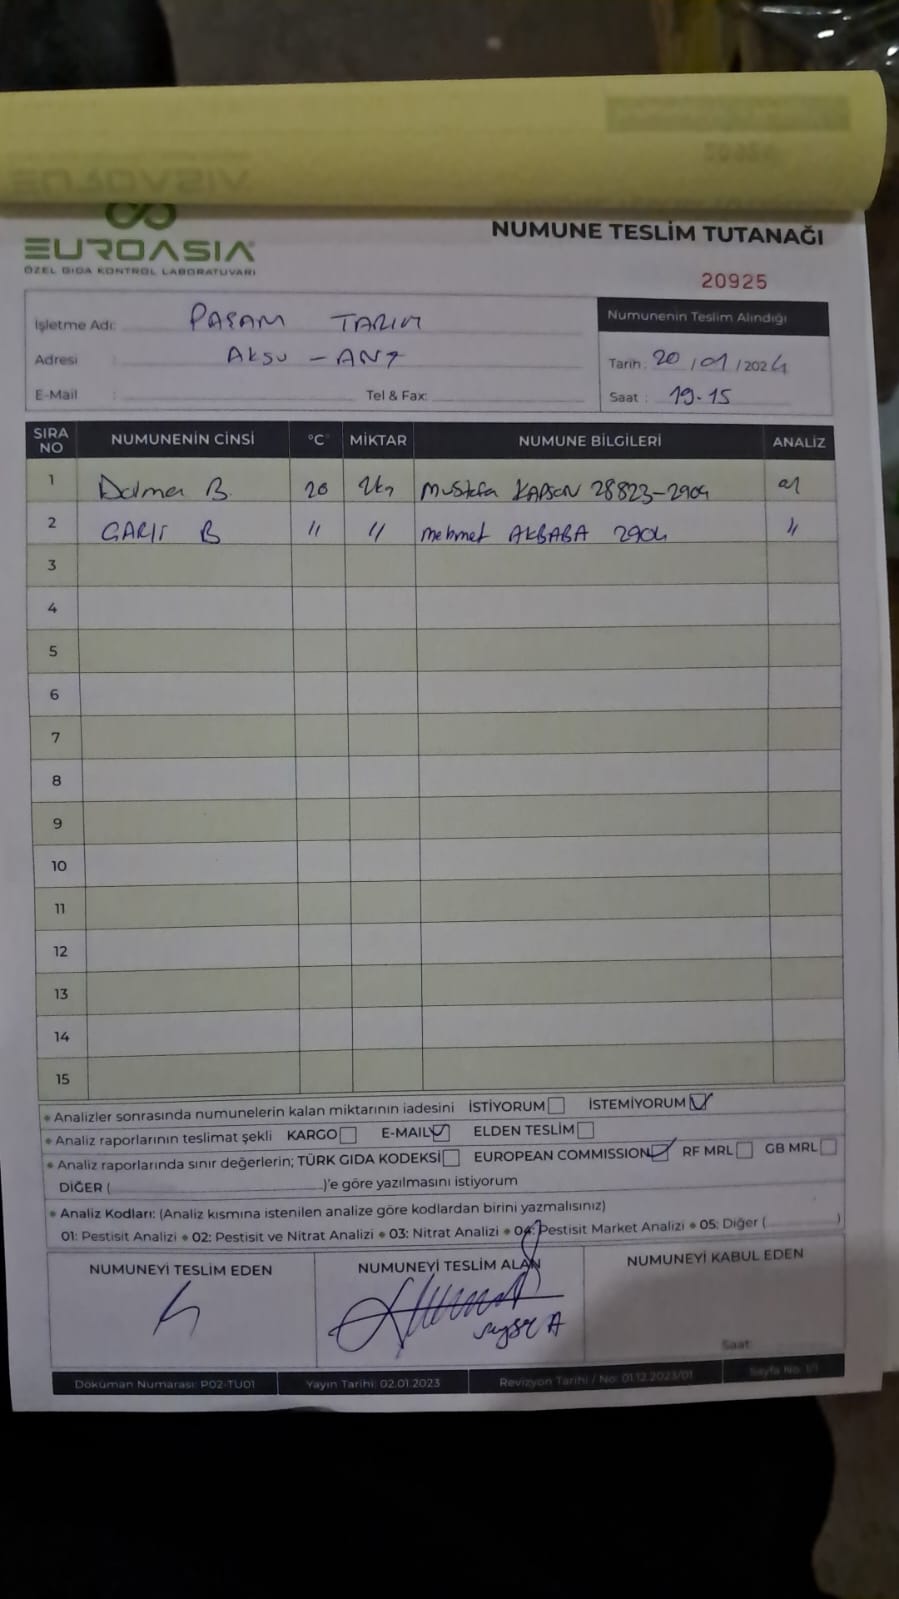 EUROASIA
ÖZEL GIDA KONTROL LABORATUVARI
NUMUNE TESLİM TUTANAĞI
20925
İşletme Adı: PAŞAM TARIM
Adresi : AKSU - ANT
E-Mail : Tel & Fax:
Numunenin Teslim Alındığı
Tarih: 20/01/2024
Saat : 19-15
SIRA NO NUMUNENİN CİNSİ °C MİKTAR NUMUNE BİLGİLERİ ANALİZ
1 Dolma B. 20 2kg Mustafa 28823-2904 01
2 B " " Mehmet AKBABA 2904 "
3
4
5
6
7
8
9
10
11
12
13
14
15
• Analizler sonrasında numunelerin kalan miktarının iadesini İSTİYORUM İSTEMİYORUM
• Analiz raporlarının teslimat şekli KARGO E-MAIL ELDEN TESLİM
• Analiz raporlarında sınır değerlerin; TÜRK GIDA KODEKSİ EUROPEAN COMMISSION RF MRL GB MRL
DİĞER ( )'e göre yazılmasını istiyorum
• Analiz Kodları: (Analiz kısmına istenilen analize göre kodlardan birini yazmalısınız)
01: Pestisit Analizi • 02: Pestisit ve Nitrat Analizi • 03: Nitrat Analizi • 04: Pestisit Market Analizi • 05: Diğer ( )
NUMUNEYİ TESLİM EDEN NUMUNEYİ TESLİM ALAN NUMUNEYİ KABUL EDEN
Saat:
Doküman Numarası: P02-TU01 Yayın Tarihi: 02.01.2023 Revizyon Tarihi / No: 01.12.2023/01 Sayfa No: 1/1